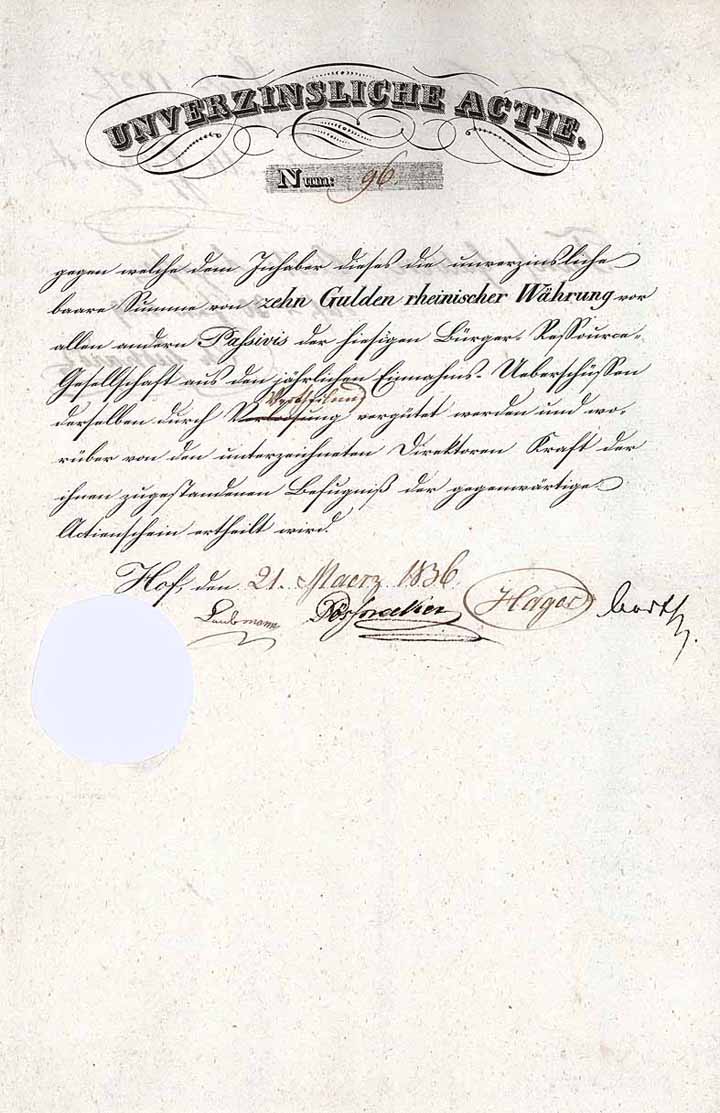 UNVERZINSLICHE ACTIE.
Num: 96.
gegen welche dem Inhaber dieses die unverzinsliche
baare Summe von zehn Gulden rheinischer Währung vor
allen andern Passivis der hiesigen Bürger-Ressource-
Gesellschaft aus den jährlichen Einnahms-Ueberschüssen
Vertheilung
derselben durch Verloosung vergütet werden und wo-
rüber von den unterzeichneten Direktoren Kraft der
ihnen zugestandenen Befugniß der gegenwärtige
Actienschein ertheilt wird.
Hof, den 21. Maerz 1836.
Laubmann Hager